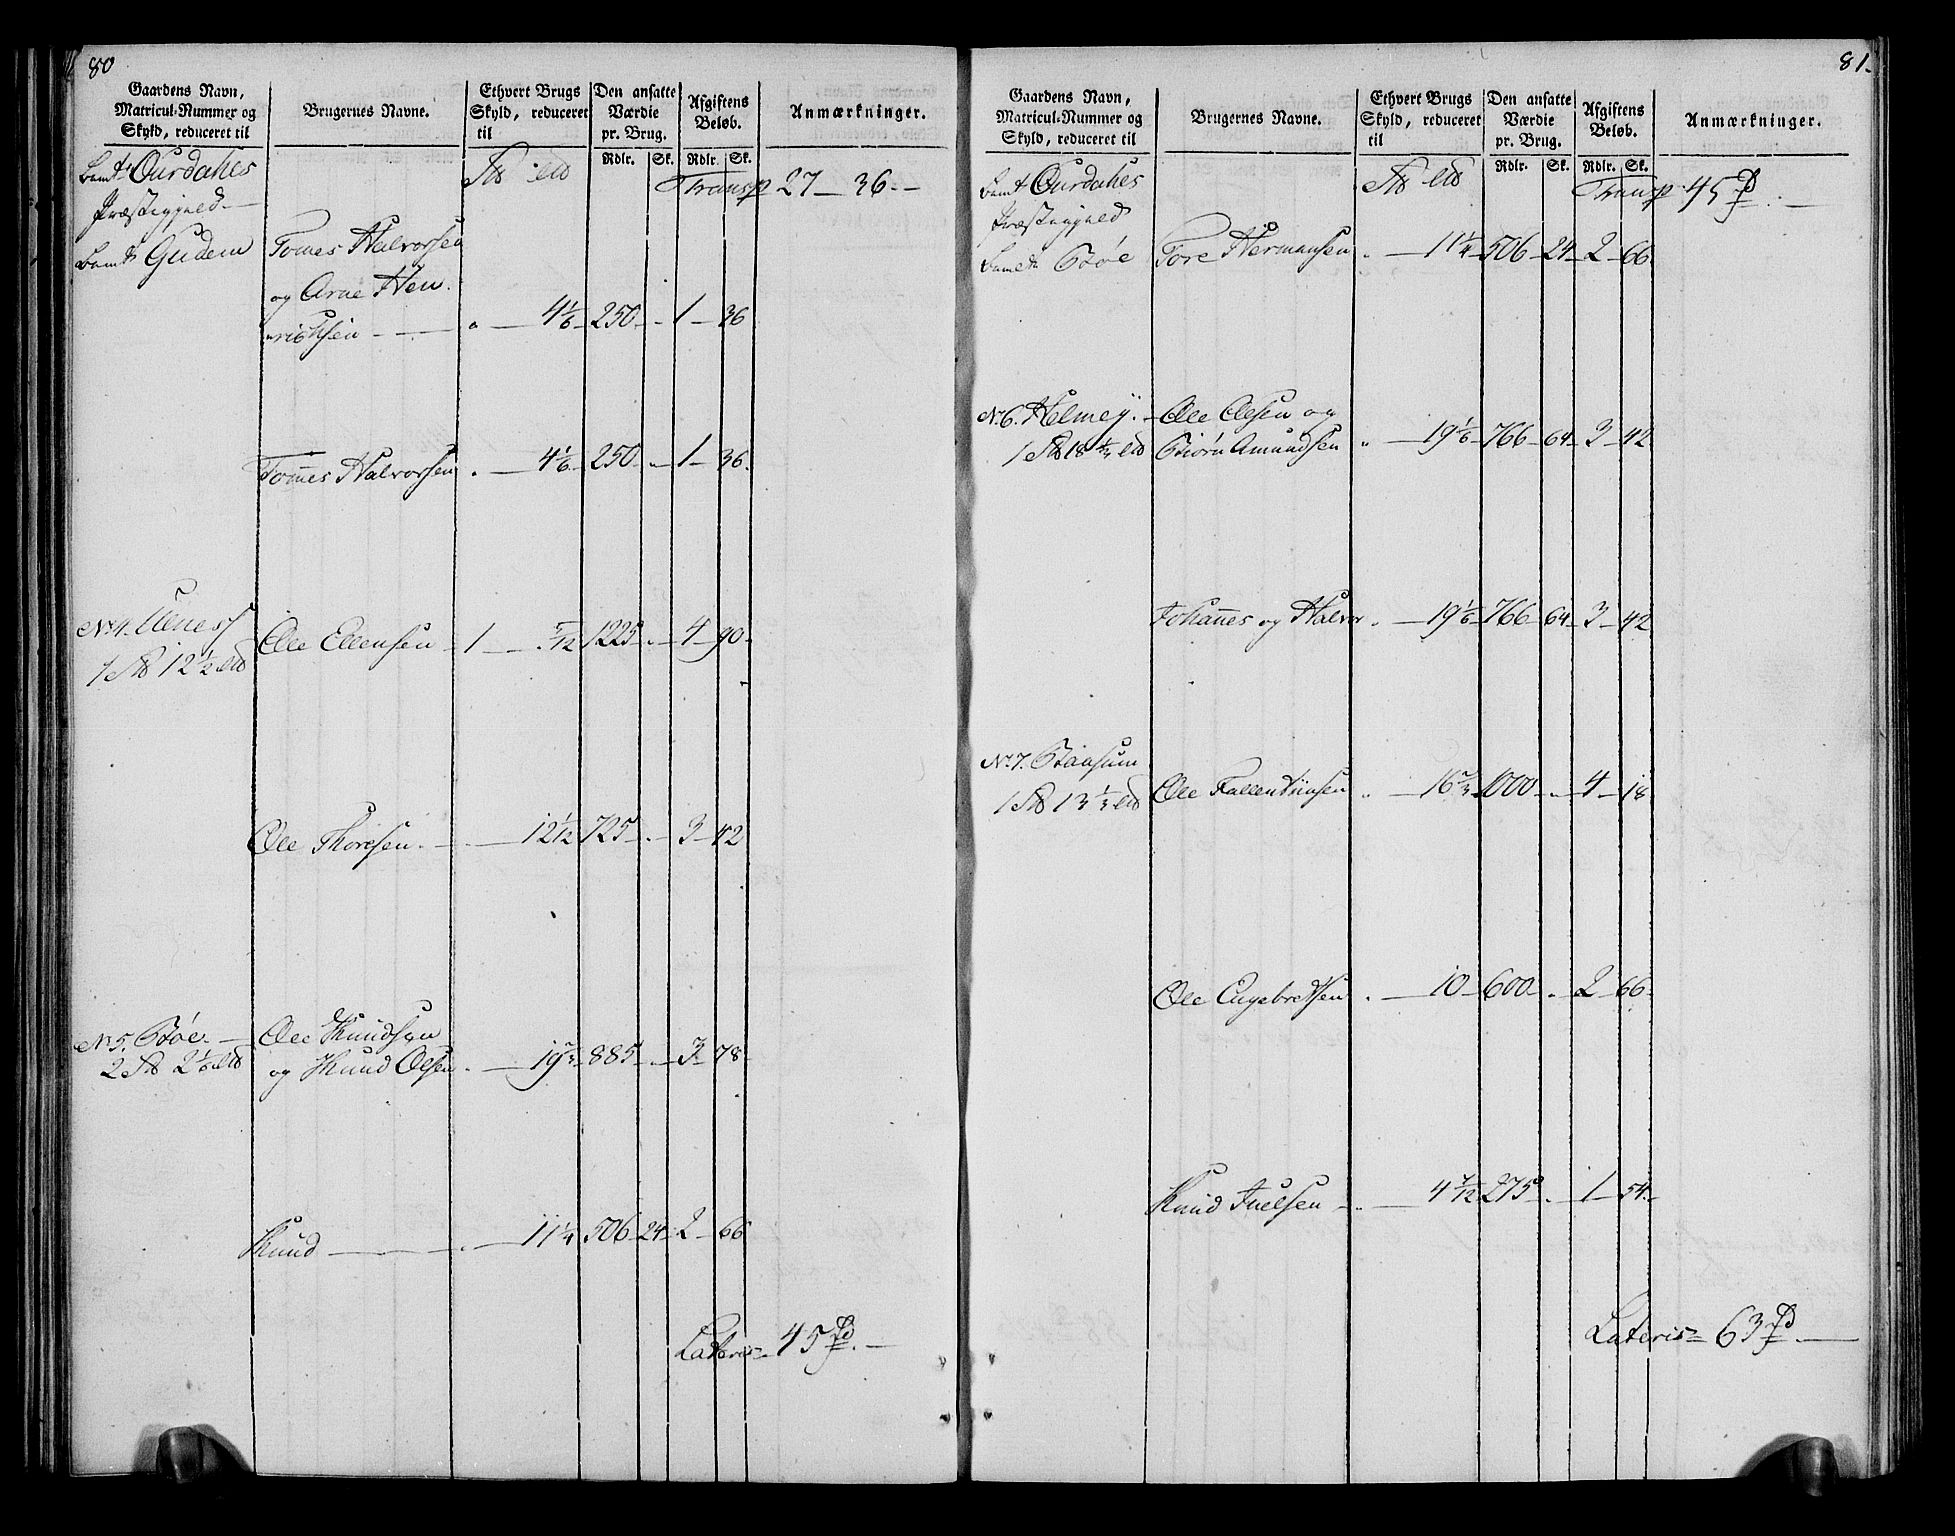 80
Gaardens Navn, Matricul-Nummer og Skyld, reduceret til
Brugernes Navne.
Ethvert Brugs Skyld, reduceret til
Den ansatte Værdie pr. Brug.
Afgiftens Beløb.
Anmærkninger.
Rdlr. Sk. Rdlr. Sk.
Ourdahls Transp 27 — 36. —
Præstegjæld
Gudem Tomes Halvorsen
og Arne Hen
richsen — 4 1/6 250 — 1 — 36
Tomes Halvorsen — 4 1/6 250 — 1 — 36.
No 4. 12 1/2 Ole Ellensen 1 — 5/12 1225 — 4 — 90
Ole Thoresen — 12 1/12 725 — 3 — 42
No 5. Bøe — Ole Knudsen
2 2 1/6 og Knud Olsen — 19 2/3 885 — 3 — 78
Knud — 11 1/4 506 24 2 — 66
Lateris 45
81.
Gaardens Navn, Matricul-Nummer og Skyld, reduceret til
Brugernes Navne.
Ethvert Brugs Skyld, reduceret til
Den ansatte Værdie pr. Brug.
Afgiftens Beløb.
Anmærkninger.
Rdlr. Sk. Rdlr. Sk.
Ourdahls Transp 45
Præstegjæld
Bøe Tore Hermansen — 11 1/4 506 24 2 — 66
No 6. Helmey. Ole Olsen og
1 18 1/3 Biørn Amundsen — 19 1/6 766 64 3 — 42
Johannes og Halvor — 19 1/6 766 64 3 — 42
No 7. Baggsum
1 13 1/3 Ole — 16 2/3 1000 — 4 — 18
Ole Engebretsen — 10 600 — 2 — 66
Knud Juelsen — 4 7/12 275 — 1 — 54
Lateris 63